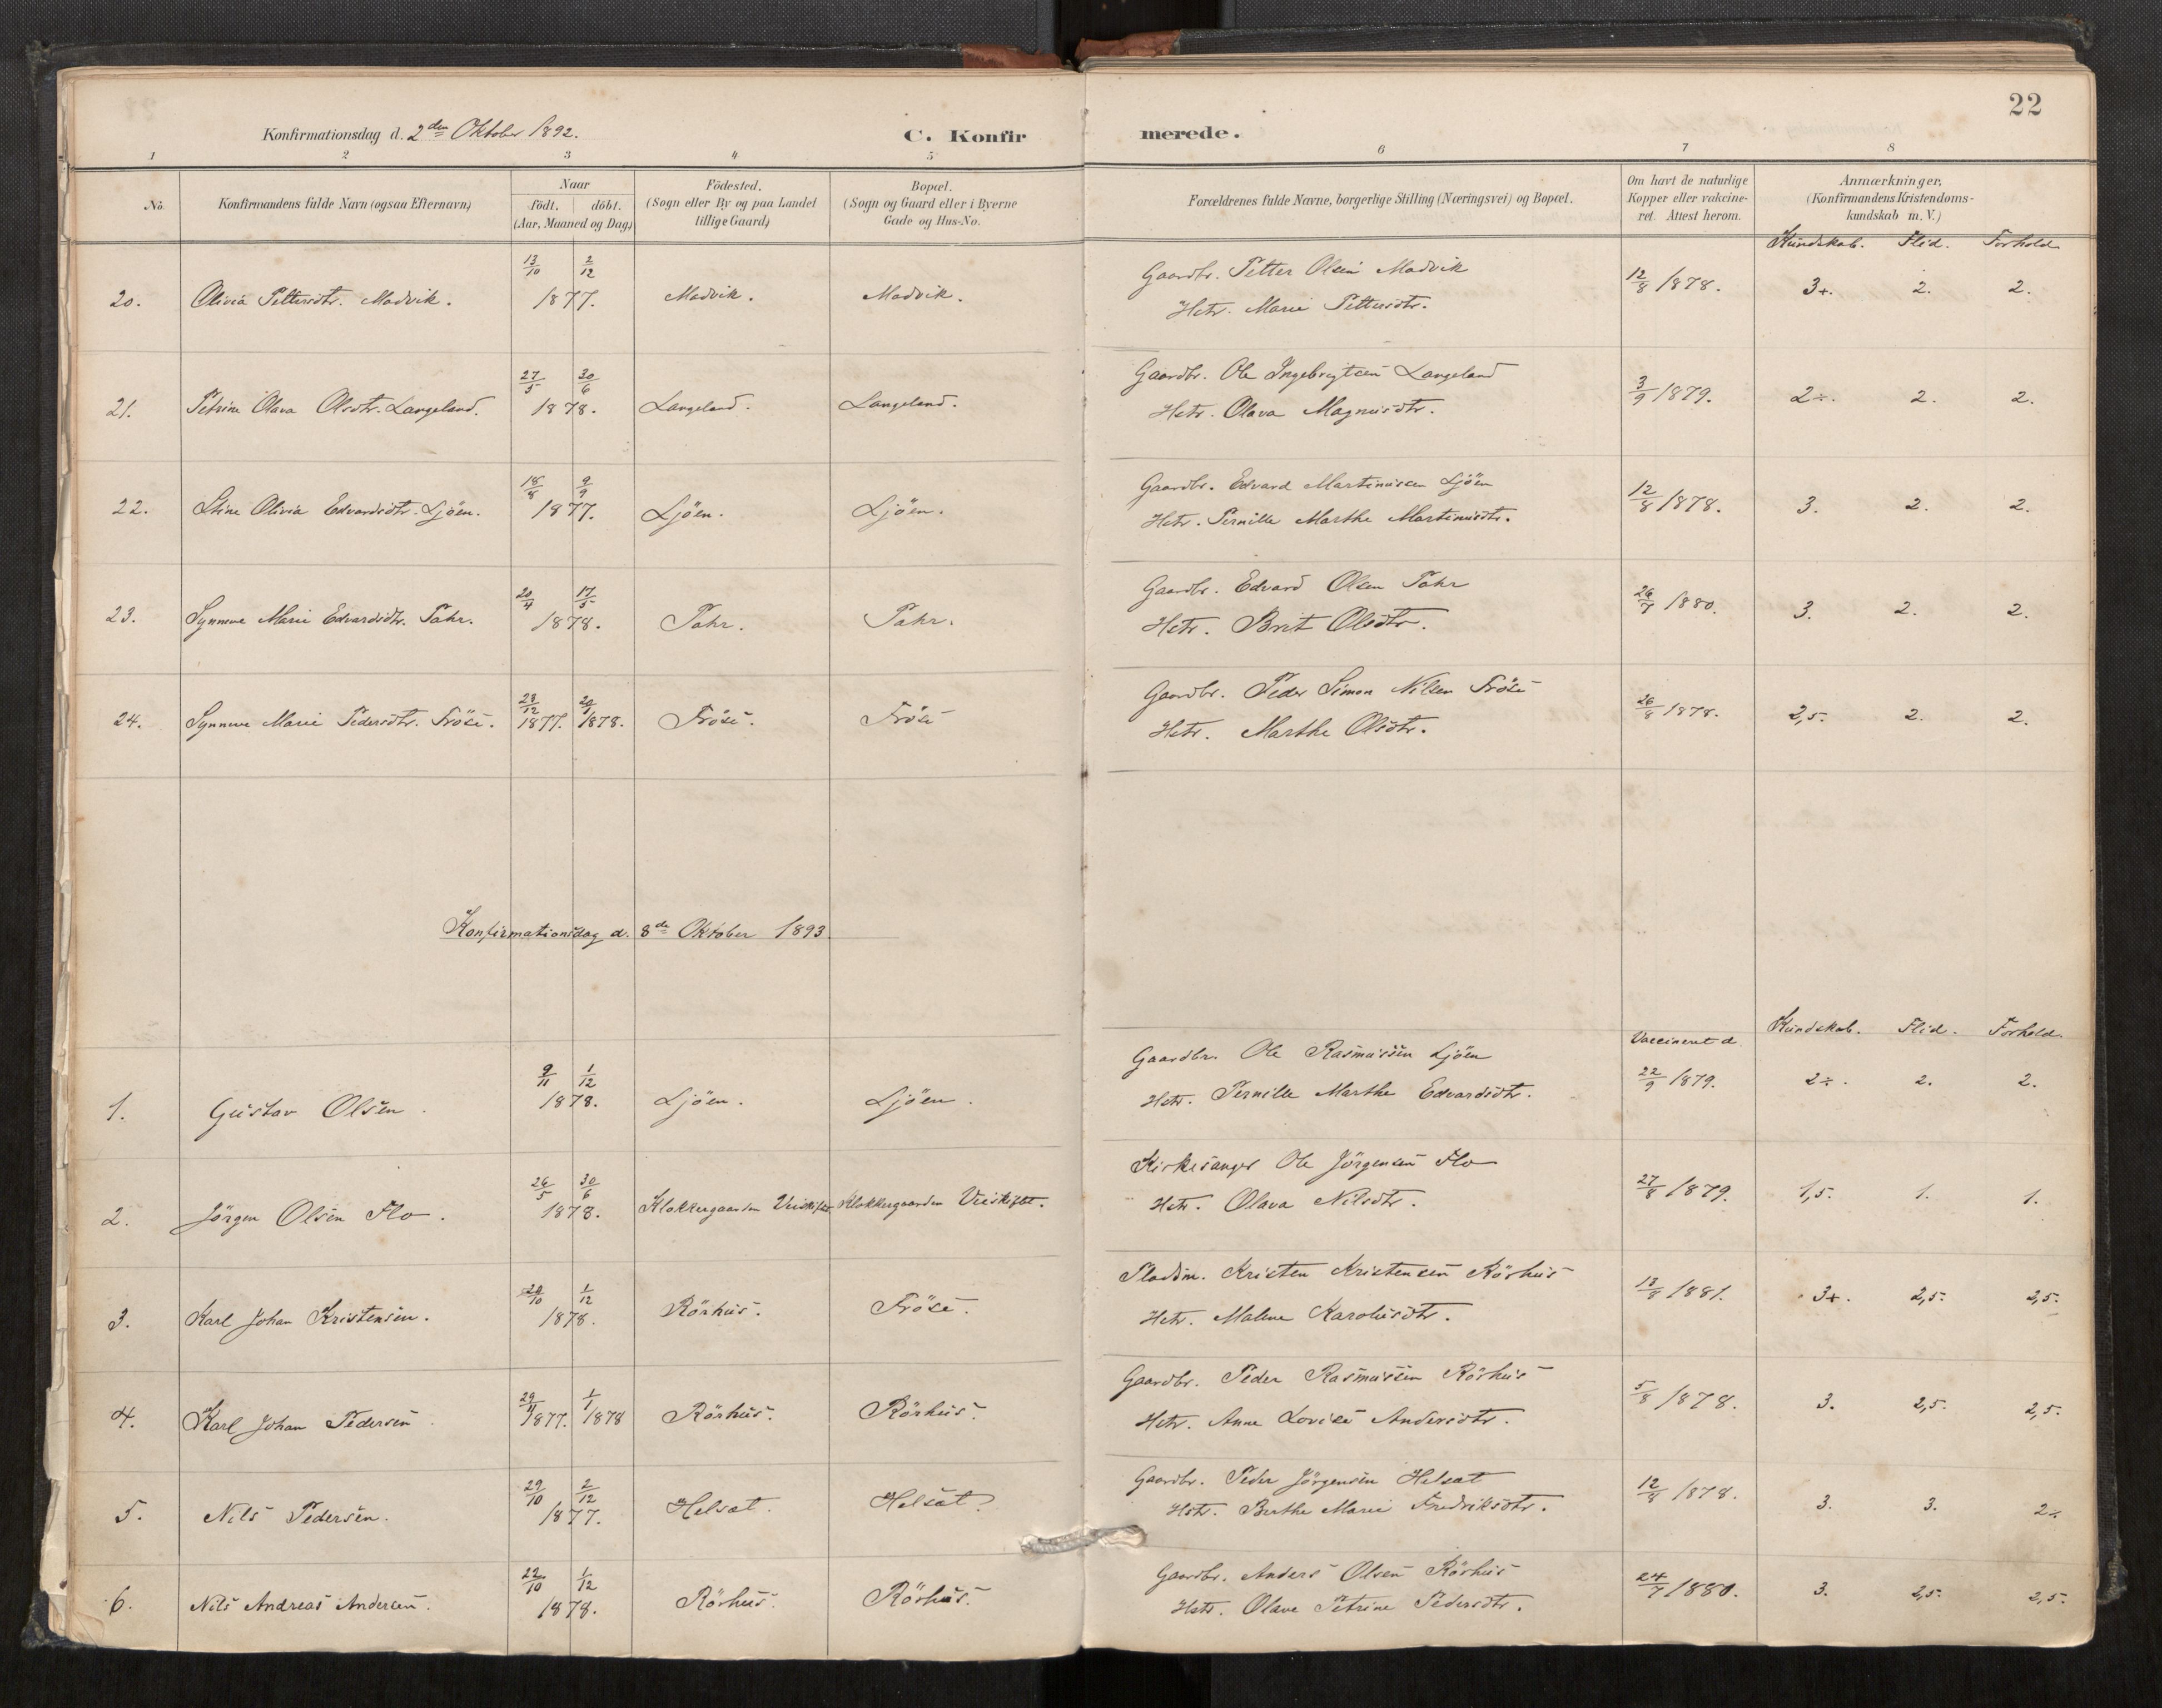 22
Konfirmationsdag d. 2den Oktober 1892.
C. Konfirmerede.
1 2 3 4 5 6 7 8
No.
Konfirmandens fulde Navn (ogsaa Efternavn)
Naar
födt. döbt.
(Aar, Maaned og Dag)
Födested.
(Sogn eller By og paa Landet
tillige Gaard)
Bopæl.
(Sogn og Gaard eller i Byerne
Gade og Hus-No.
Forældrenes fulde Navne, borgerlige Stilling (Næringsvei) og Bopæl.
Om havt de naturlige
Kopper eller vakcine-
ret. Attest herom.
Anmærkninger,
(Konfirmandens Kristendoms-
kundskab m. V.)
Kundskab. Flid. Forhold
20. Olivia Pettersdtr. Madvik. 13/10 2/12 1877. Madvik. Madvik. Gaardbr. Petter Olsen Madvik 12/8 1878. 3+. 2. 2.
Hstr. Marie Pettersdtr.
21. Petrine Olava Olsdtr. Langeland. 27/5 30/6 1878. Langeland. Langeland. Gaardbr. Ole Ingebrigtsen Langeland 3/9 1879. 2÷. 2. 2.
Hstr. Olava Magnusdtr.
22. Stine Olivia Edvardsdtr. Ljöen. 18/8 9/9 1877. Ljöen. Ljöen. Gaardbr. Edvard Martinussen Ljöen 12/8 1878. 3. 2. 2.
Hstr. Pernille Marthe Martinusdtr.
23. Synneve Marie Edvardsdtr. Tahr. 20/4 17/5 1878. Tahr. Tahr. Gaardbr. Edvard Olsen Tahr 26/7 1880. 3. 2. 2.
Hstr. Brit Olsdtr.
24. Synneve Marie Pedersdtr. Fröse. 28/12 1877. 20/1 1878. Fröse. Fröse Gaardbr. Peder Simon Nilsen Fröse 26/8 1878. 2,5. 2. 2.
Hstr. Marthe Olsdtr.
Konfirmationsdag d. 8de Oktober 1893.
Vaccineret d. Kundskab. Flid. Forhold
1. Gustav Olsen. 9/11 1/12 1878. Ljöen. Ljöen. Gaardbr. Ole Rasmussen Ljöen 22/9 1879. 2÷. 2. 2.
Hstr. Pernille Marthe Edvardsdtr.
2. Jörgen Olsen Flo. 26/5 30/6 1878. Klokkergaarden Klokkergaarden Kirkesanger Ole Jörgensen Flo 27/8 1879. 1,5. 1. 1.
Hstr. Olava Nilsdtr.
3. Karl Johan Kristensen. 20/10 1/12 1878. Rörhus. Fröse. Pladsm. Kristen Kristensen Rörhus 13/8 1881. 3+. 2,5. 2,5.
Hstr. Malene Karolusdtr.
4. Karl Johan Pedersen 29/11 1877. 1/1 1878 Rörhus. Rörhus. Gaardbr. Peder Rasmussen Rörhus 5/8 1878. 3. 2,5. 2,5.
Hstr. Anne Lovise Andersdtr.
5. Nils Pedersen. 29/10 2/12 1877. Helsat. Helsat. Gaardbr. Peder Jörgensen Helsat 12/8 1878. 3. 3. 2÷
Hstr. Berthe Marie Fredriksdtr.
6. Nils Andreas Andersen. 22/10 1/12 1878. Rörhus. Rörhus. Gaardbr. Anders Olsen Rörhus 24/7 1880. 3. 2,5. 2,5.
Hstr. Olave Petrine Pedersdtr.